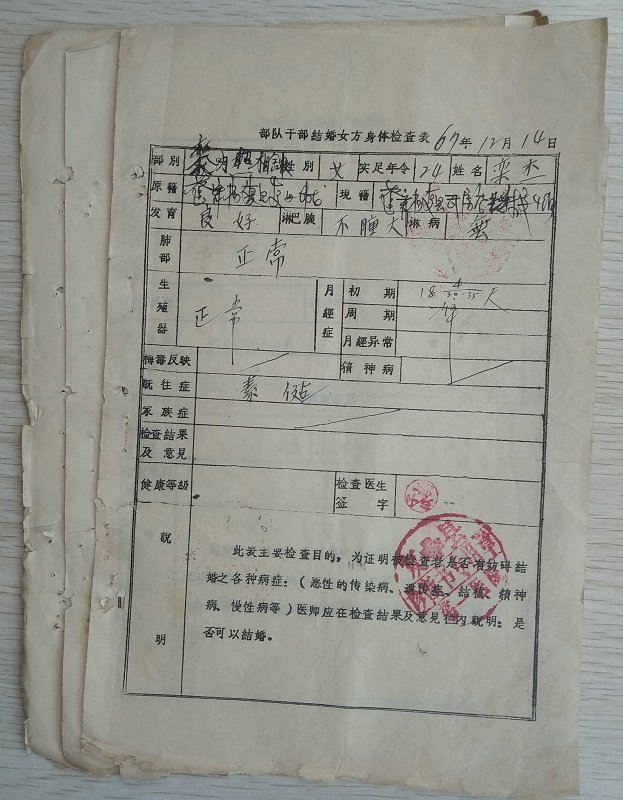 部队干部結婚女方身体检查表 67年12月14日
部别 性别 女 实足年令 24 姓名 栾
原籍 現籍
发育 良好 淋巴腺 不腫大 淋病 無
肺部 正常
生殖器 正常 月經症 初期 18
周期
月經异常
梅毒反映 精神病
既往症 素健
家族症
检查結果及意見
健康等級 检查医生签字
說明 此表主要检查目的，为证明被检查者是否有妨碍結
婚之各种病症：（恶性的传染病、遗传症、結核、精神
病、慢性病等）医师应在检查結果及意見栏內說明：是
否可以結婚。